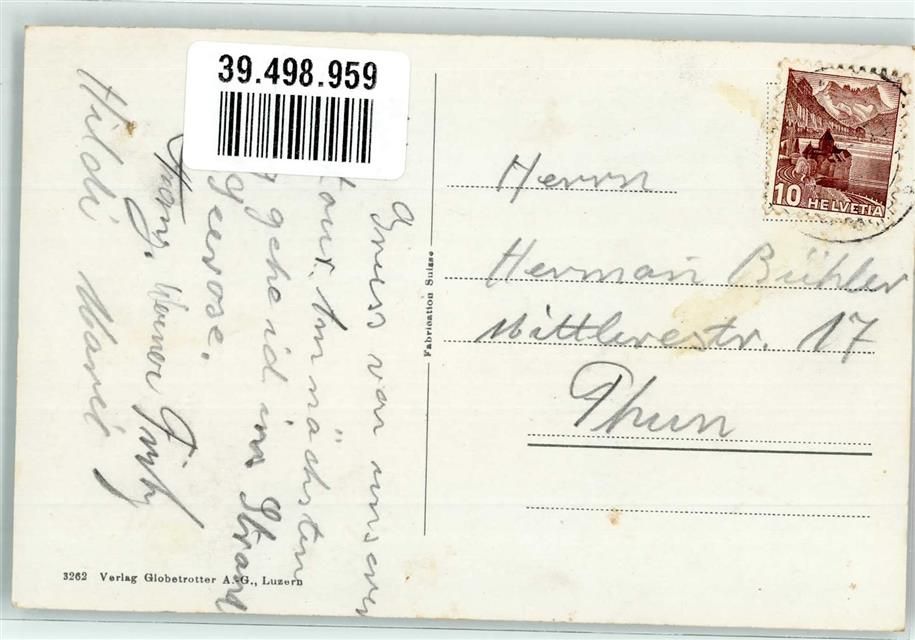 39.498.959
Gruss von unserer
tour. Am nächsten
gehe id ins Strand
Hans. Werner Fritz
Hildi
Fabrication Suisse
10 HELVETIA
Herrn
Herman Bühler
Mittlerestr. 17
Thun
3262 Verlag Globetrotter A.-G., Luzern